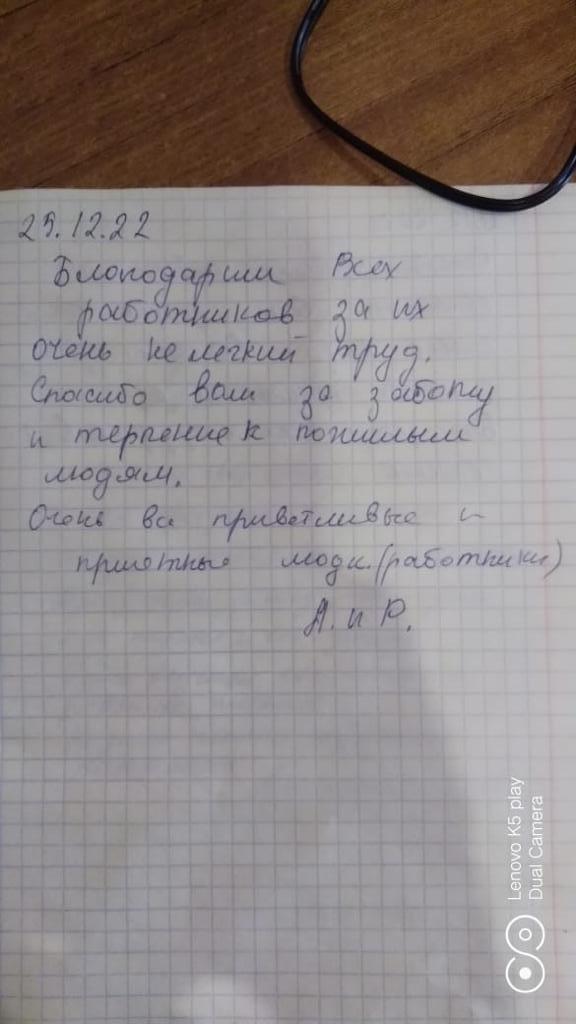 25.12.22
Благодарим Всех
работников за их
очень не легкий труд.
Спасибо вам за заботу
и терпение к пожилым
людям.
Очень все приветливые и
приятные люди. (работники)
А. и Р.
Lenovo K5 play
Dual Camera